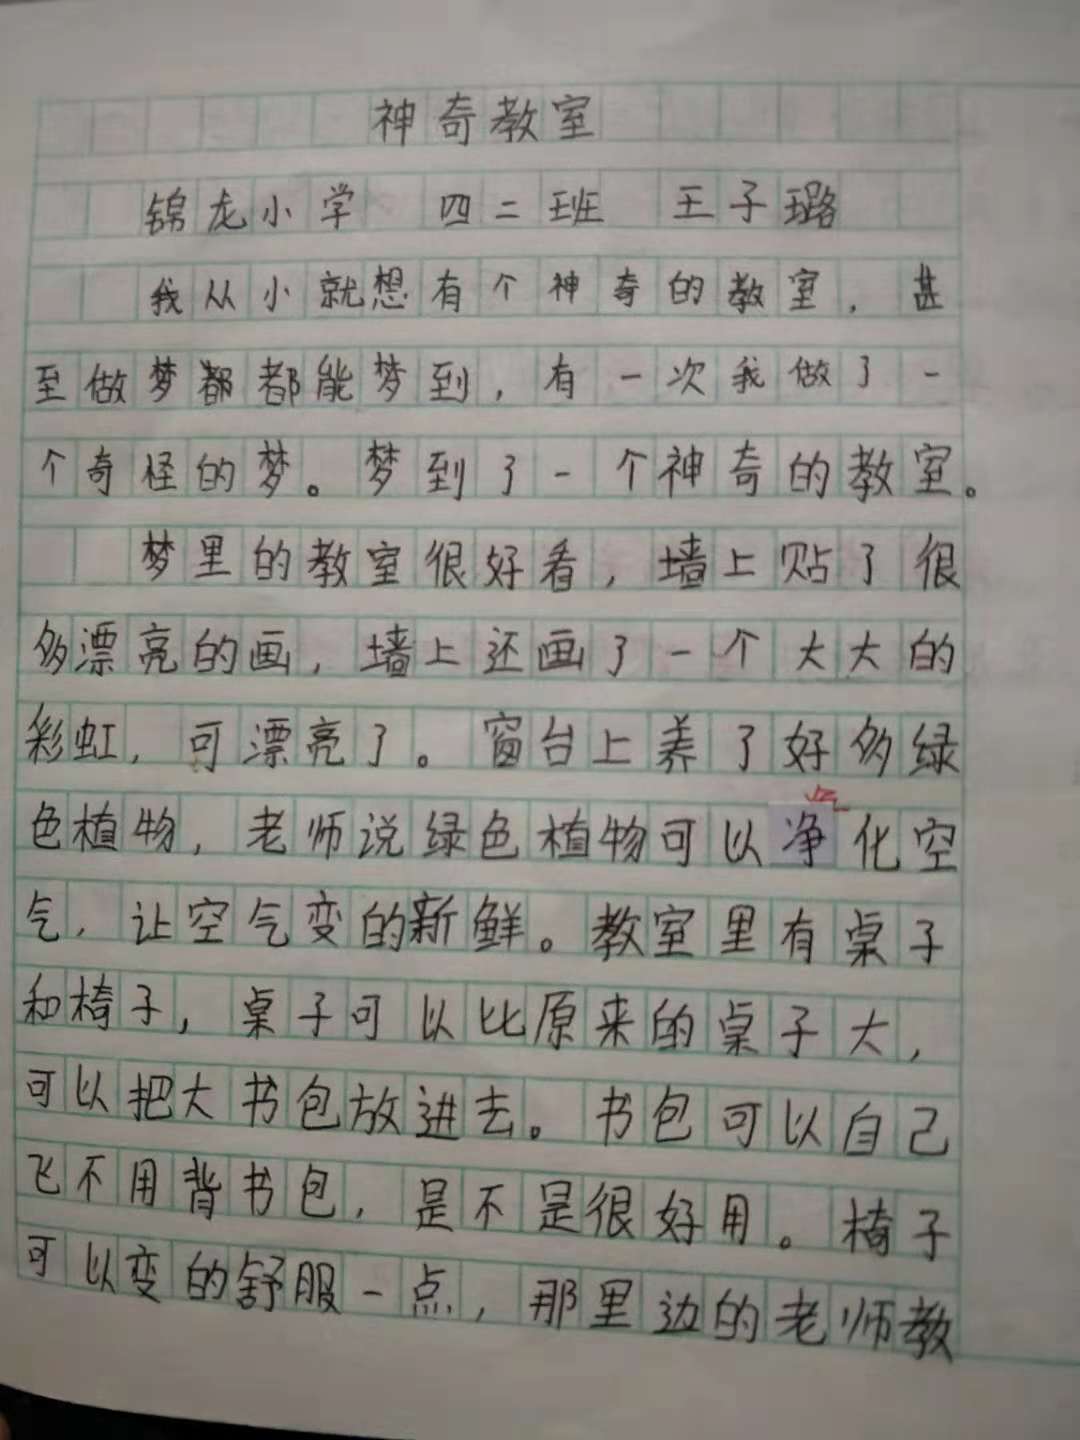 神奇教室
锦龙小学 四二班 王子璐
我从小就想有个神奇的教室，甚
至做梦都都能梦到，有一次我做了一
个奇怪的梦。梦到了一个神奇的教室。
梦里的教室很好看，墙上贴了很
多漂亮的画，墙上还画了一个大大的
彩虹，可漂亮了。窗台上养了好多绿
色植物，老师说绿色植物可以净化空
气，让空气变的新鲜。教室里有桌子
和椅子，桌子可以比原来的桌子大，
可以把大书包放进去。书包可以自己
飞不用背书包，是不是很好用。椅子
可以变的舒服一点，那里边的老师教